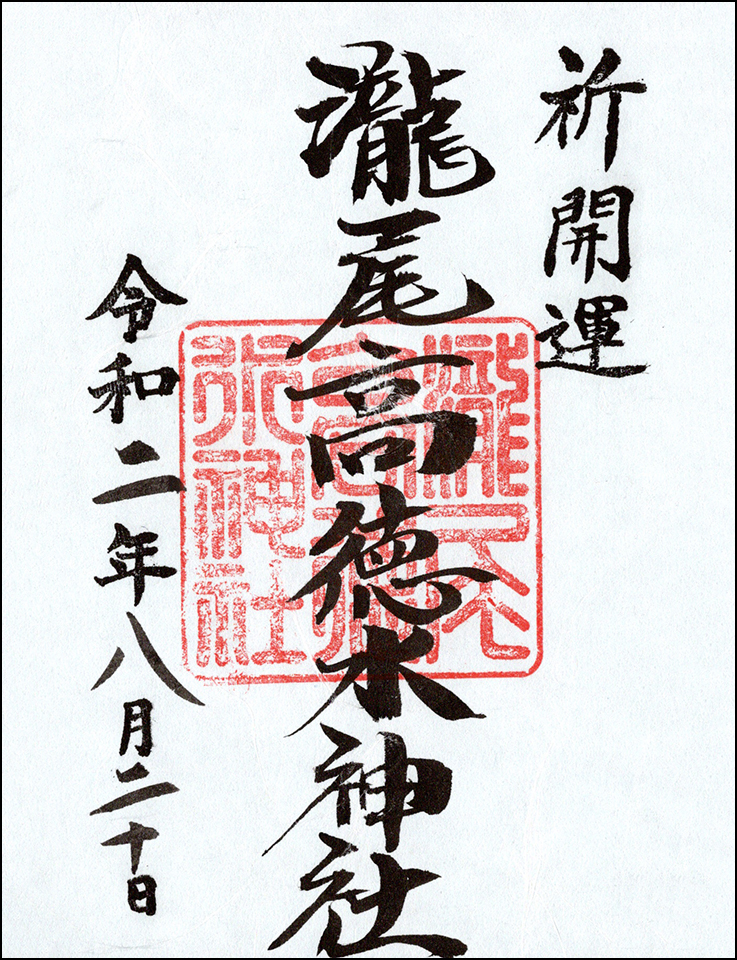 祈開運
瀧尾高徳水神社
瀧尾
高徳
水神社
令和二年八月二十日